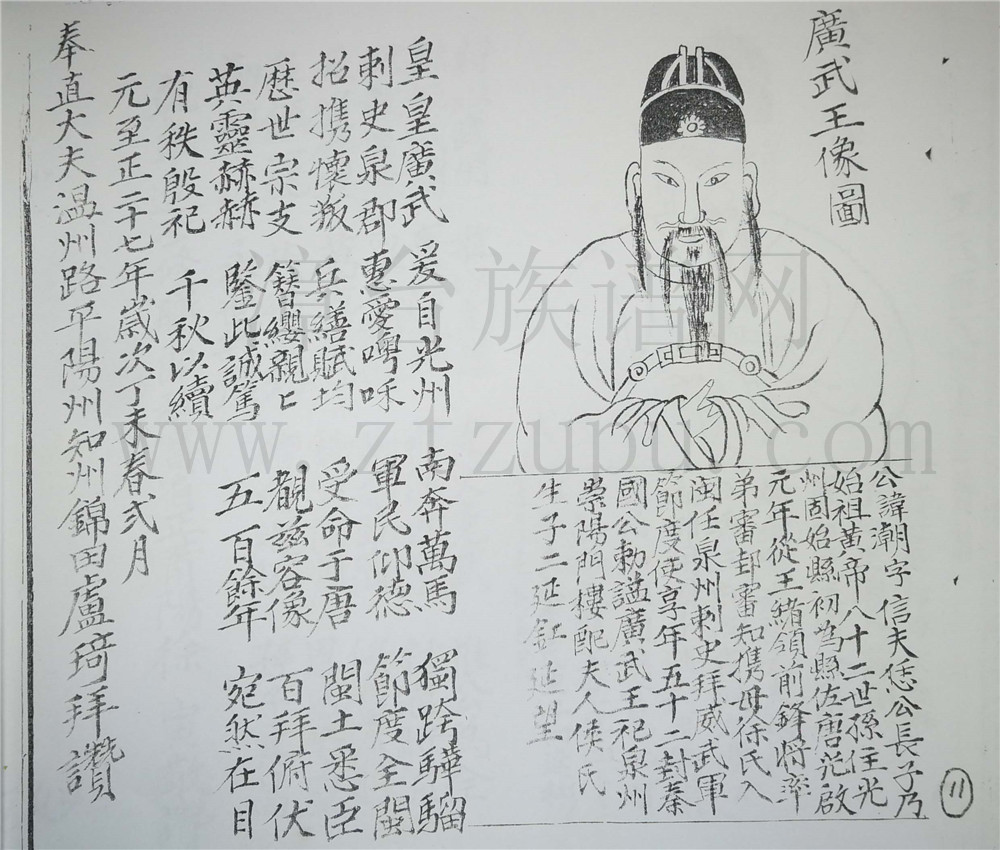 廣武王像圖
公諱潮字信夫恁公長子乃
始祖黃帝八十二世孫住光
州固始縣初為縣佐唐光啟
元年從王緒領前鋒將率
弟審邽審知携母徐氏入
閩任泉州刺史拜威武軍
節度使享年五十二封秦
國公勅謚廣武王祀泉州
崇陽門樓配夫人侯氏
生子二延紅延望
皇皇廣武 爰自光州 南奔萬馬 獨跨驊騮
刺史泉郡 惠愛噢咻 軍民仰德 節度全閩
招携懷叛 兵繕賦均 受命于唐 閩土悉臣
歷世宗支 簪纓親匕 覩兹容像 百拜俯伏
英靈赫赫 鑒此誠篤 五百餘年 宛然在目
有秩殷祀 千秋以續
元至正二十七年歲次丁未春弍月
奉直大夫温州路平陽州知州錦田盧琦拜讚
11
族谱网
www.ztzupu.com